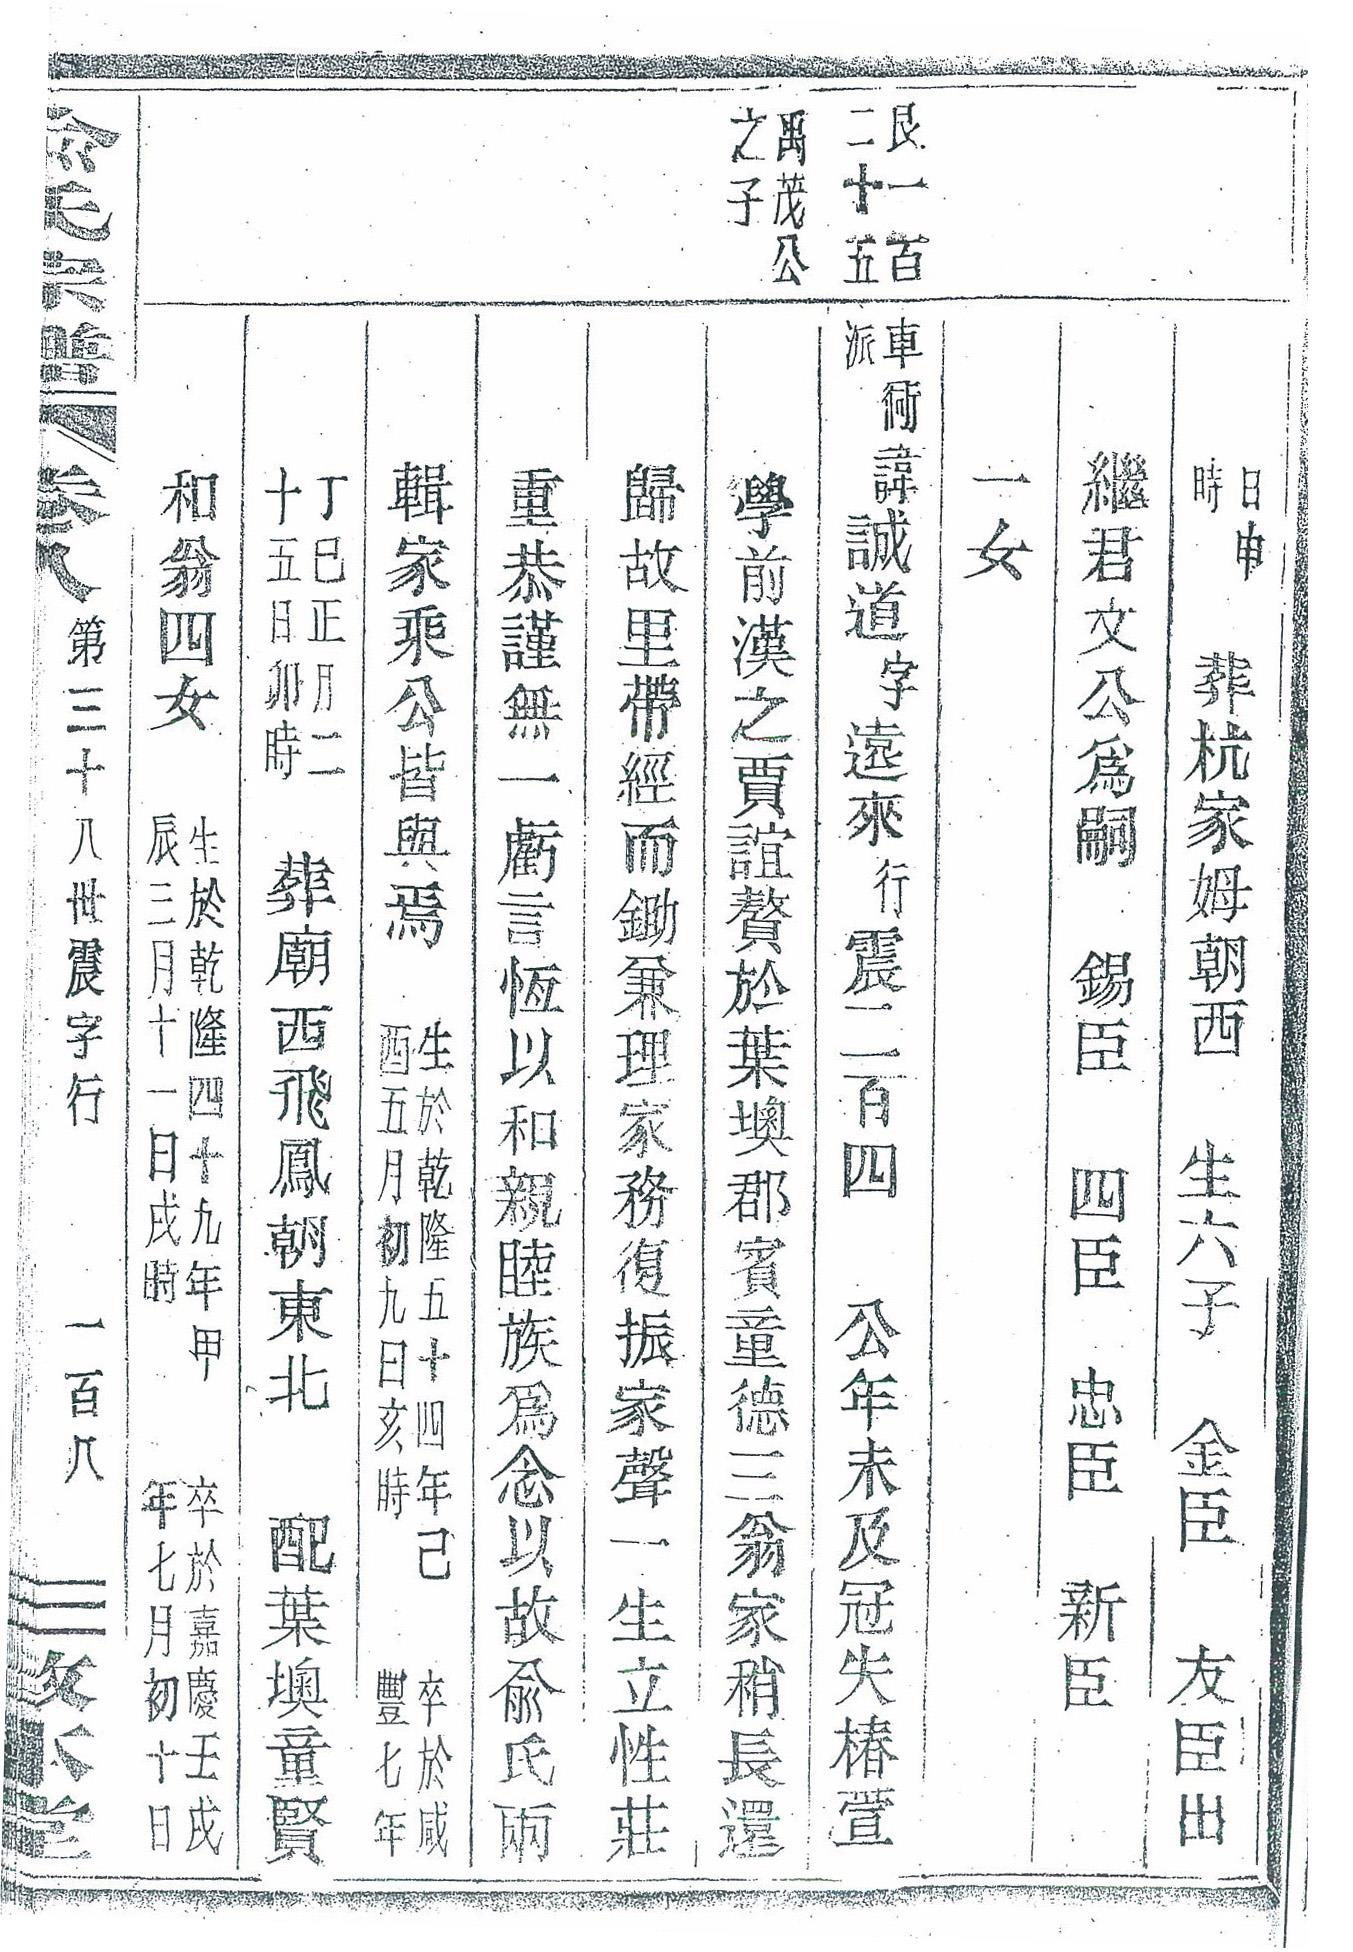 日申
時
葬杭家姆朝西　生六子　金臣　友臣出
繼君文公爲嗣　錫臣　四臣　忠臣　新臣
一女
艮一百
二十五
禹茂公
之子
車衕
派
諱誠道字遠來行震二百四　公年未及冠失椿萱
學前漢之賈誼贅於葉墺郡賓童德三翁家稍長還
歸故里帶經而鋤兼理家務復振家聲一生立性莊
重恭謹無一虧言恆以和親睦族爲念以故俞氏兩
輯家乘公皆與焉
生於乾隆五十四年己
酉五月初九日亥時
卒於咸
豐七年
丁巳正月二
十五日卯時
葬廟西飛鳳朝東北　配葉墺童賢
和翁四女
生於乾隆四十九年甲
辰三月十一日戌時
卒於嘉慶壬戌
年七月初十日
俞氏宗譜　卷八　第三十八世震字行　一百八